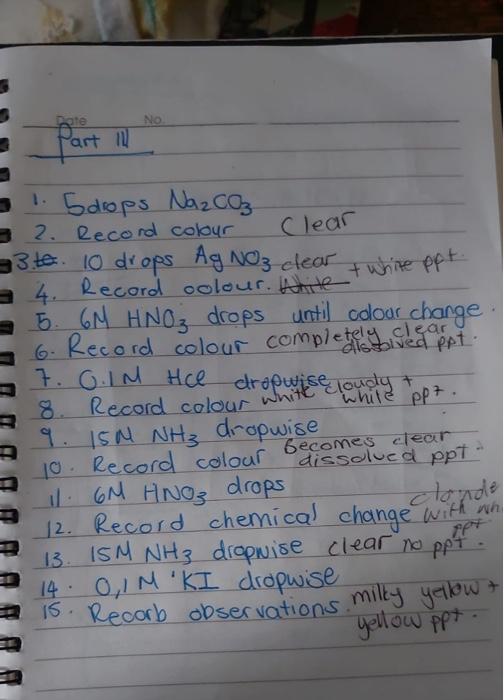 Date No.
Part III
1. 5drops Na2CO3
2. Record colour Clear
3. 10 drops AgNO3 clear + white ppt.
4. Record colour. White
5. 6M HNO3 drops until colour change.
6. Record colour completely clear dissolved ppt.
7. 0.1M HCl dropwise
8. Record colour white cloudy + while ppt.
9. 15M NH3 dropwise
10. Record colour becomes clear dissolved ppt.
11. 6M HNO3 drops
12. Record chemical change with ppt
13. 15M NH3 dropwise clear no ppt.
14. 0,1M KI dropwise
15. Recorb observations. milky yellow + yellow ppt.